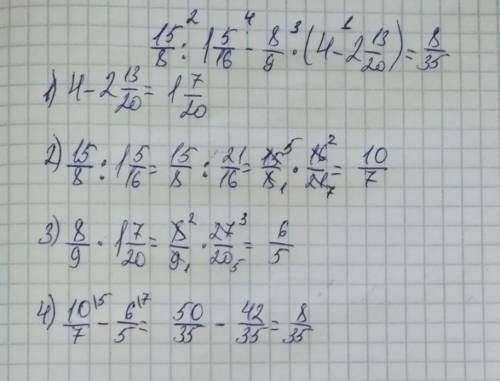 15/8 :² 1 5/16 -⁴ 8/9 ·³ (4 -¹ 2 13/20) = 8/35
1) 4 - 2 13/20 = 1 7/20
2) 15/8 : 1 5/16 = 15/8 : 21/16 = 15⁵/8₁ · 16²/21₇ = 10/7
3) 8/9 · 1 7/20 = 8²/9₁ · 27³/20₅ = 6/5
4) 10\5/7 - 6\7/5 = 50/35 - 42/35 = 8/35